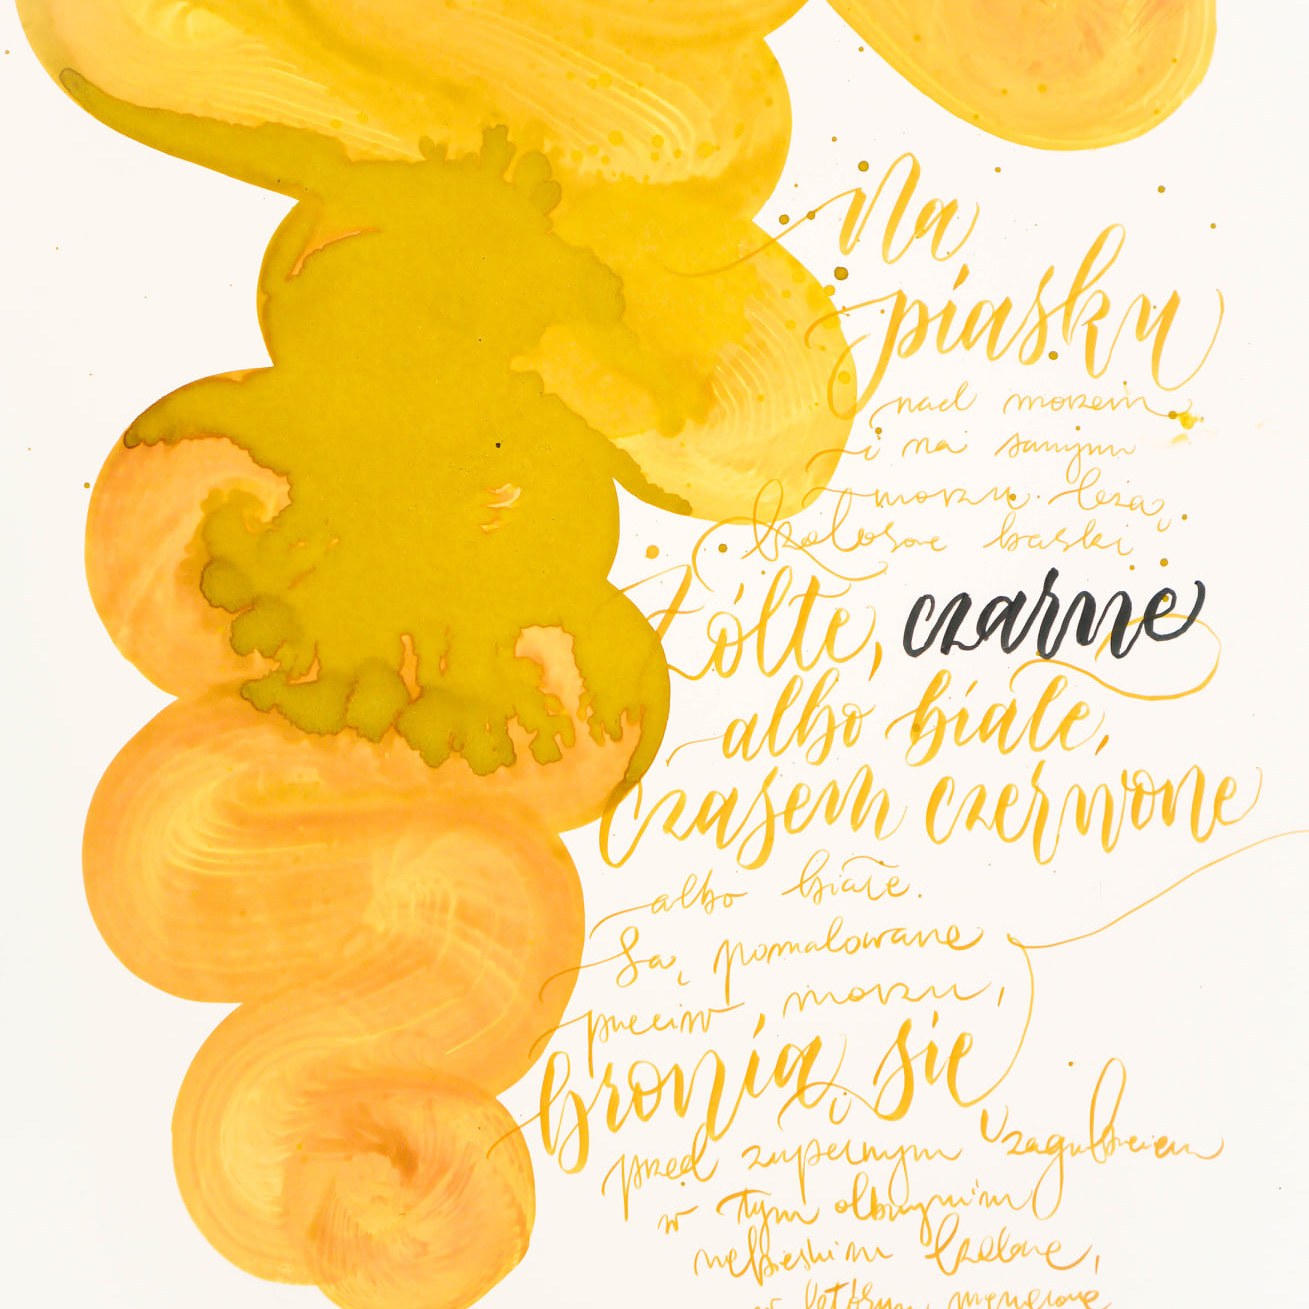 Na
piasku
nad morzem
i na samym
morzu leżą
kolosne baski
żółte, czarne
albo białe,
czasem czerwone
albo białe.
Są pomalowane
przeciw morzu,
bronią się
przed zupełnym zagubieniem
w tym olbrzymim
niebieskim
w którym